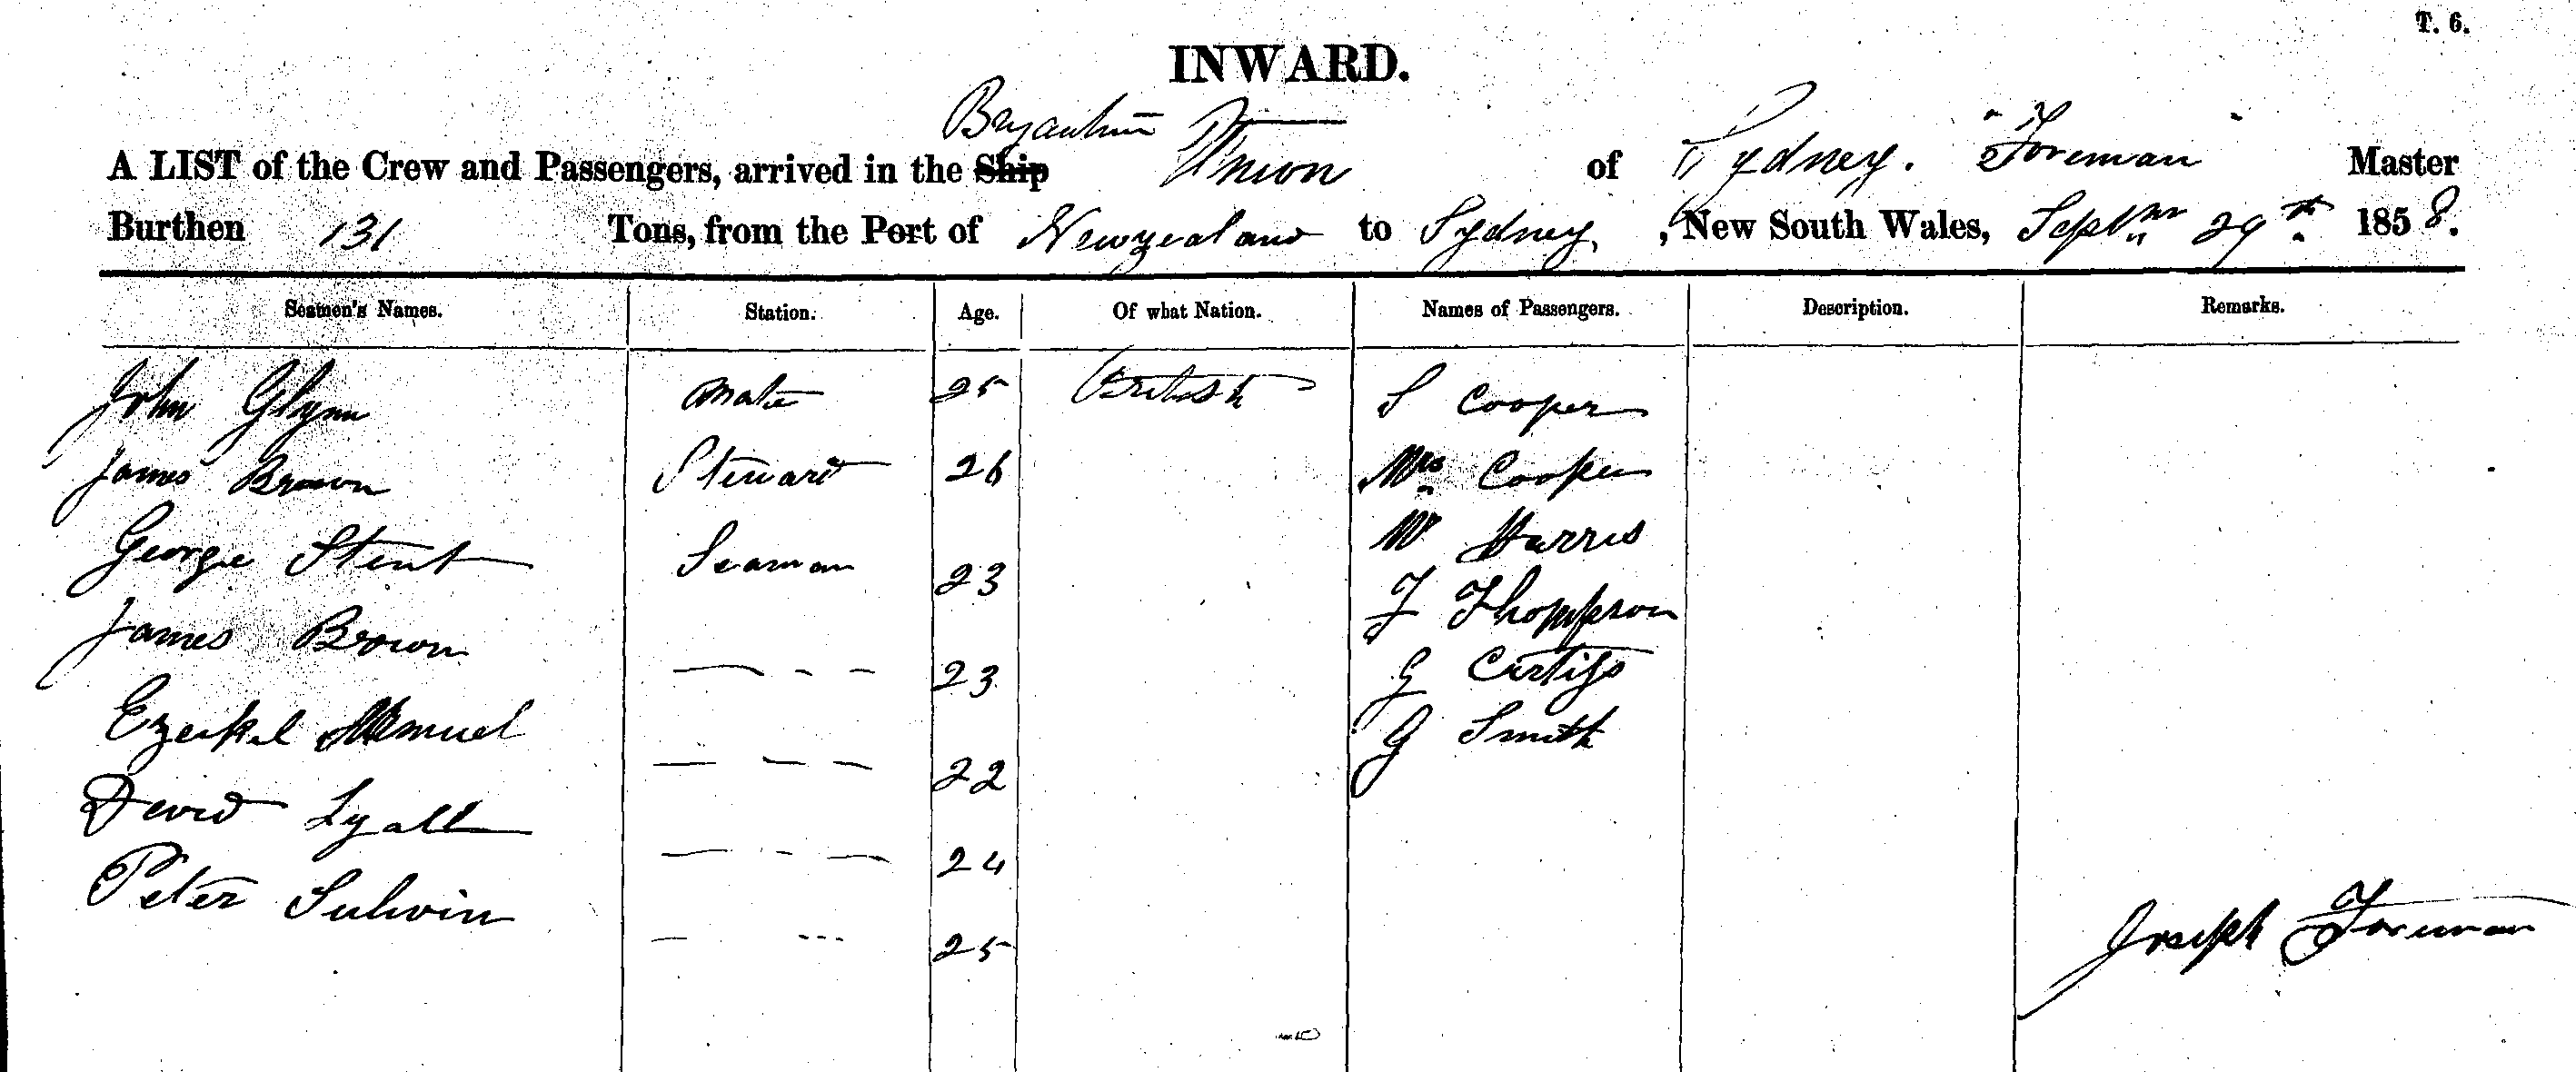 T. 6.
INWARD.
Bryantine
A LIST of the Crew and Passengers, arrived in the Ship Union of Sydney. Foreman Master
Burthen 131 Tons, from the Port of Newzealand to Sydney, New South Wales, Septmr 29th 1858.
Seamen's Names. Station. Age. Of what Nation. Names of Passengers. Description. Remarks.
John Glynn Mate 25 British S Cooper
James Brown Steward 26 Mrs Cooper
George Stent Seaman 23 W Harris
James Brown — - - 23 J Thompson
Ezeikel Samuel — — — 22 G Curtiss
David Lyall — - — 24 G Smith
Peter Sulivin — --- 25
Joseph Foreman